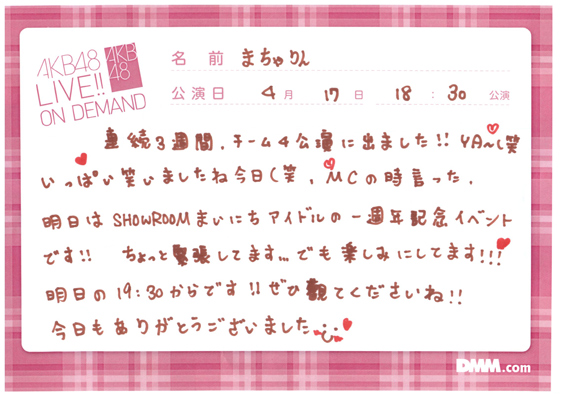 AKB48
LIVE!!
ON DEMAND
AKB
48
名 前 まちゃりん
公演日 4月 17日 18:30 公演
連続3週間、チーム4公演に出ました!! YA〜(笑
いっぱい笑いましたね今日(笑、MCの時言った、
明日はSHOWROOMまいにちアイドルの一週年記念イベント
です!! ちょっと緊張してます...でも楽しみにしてます!!!
明日の19:30からです!!ぜひ観てくださいね!!
今日もありがとうございました
DMM.com